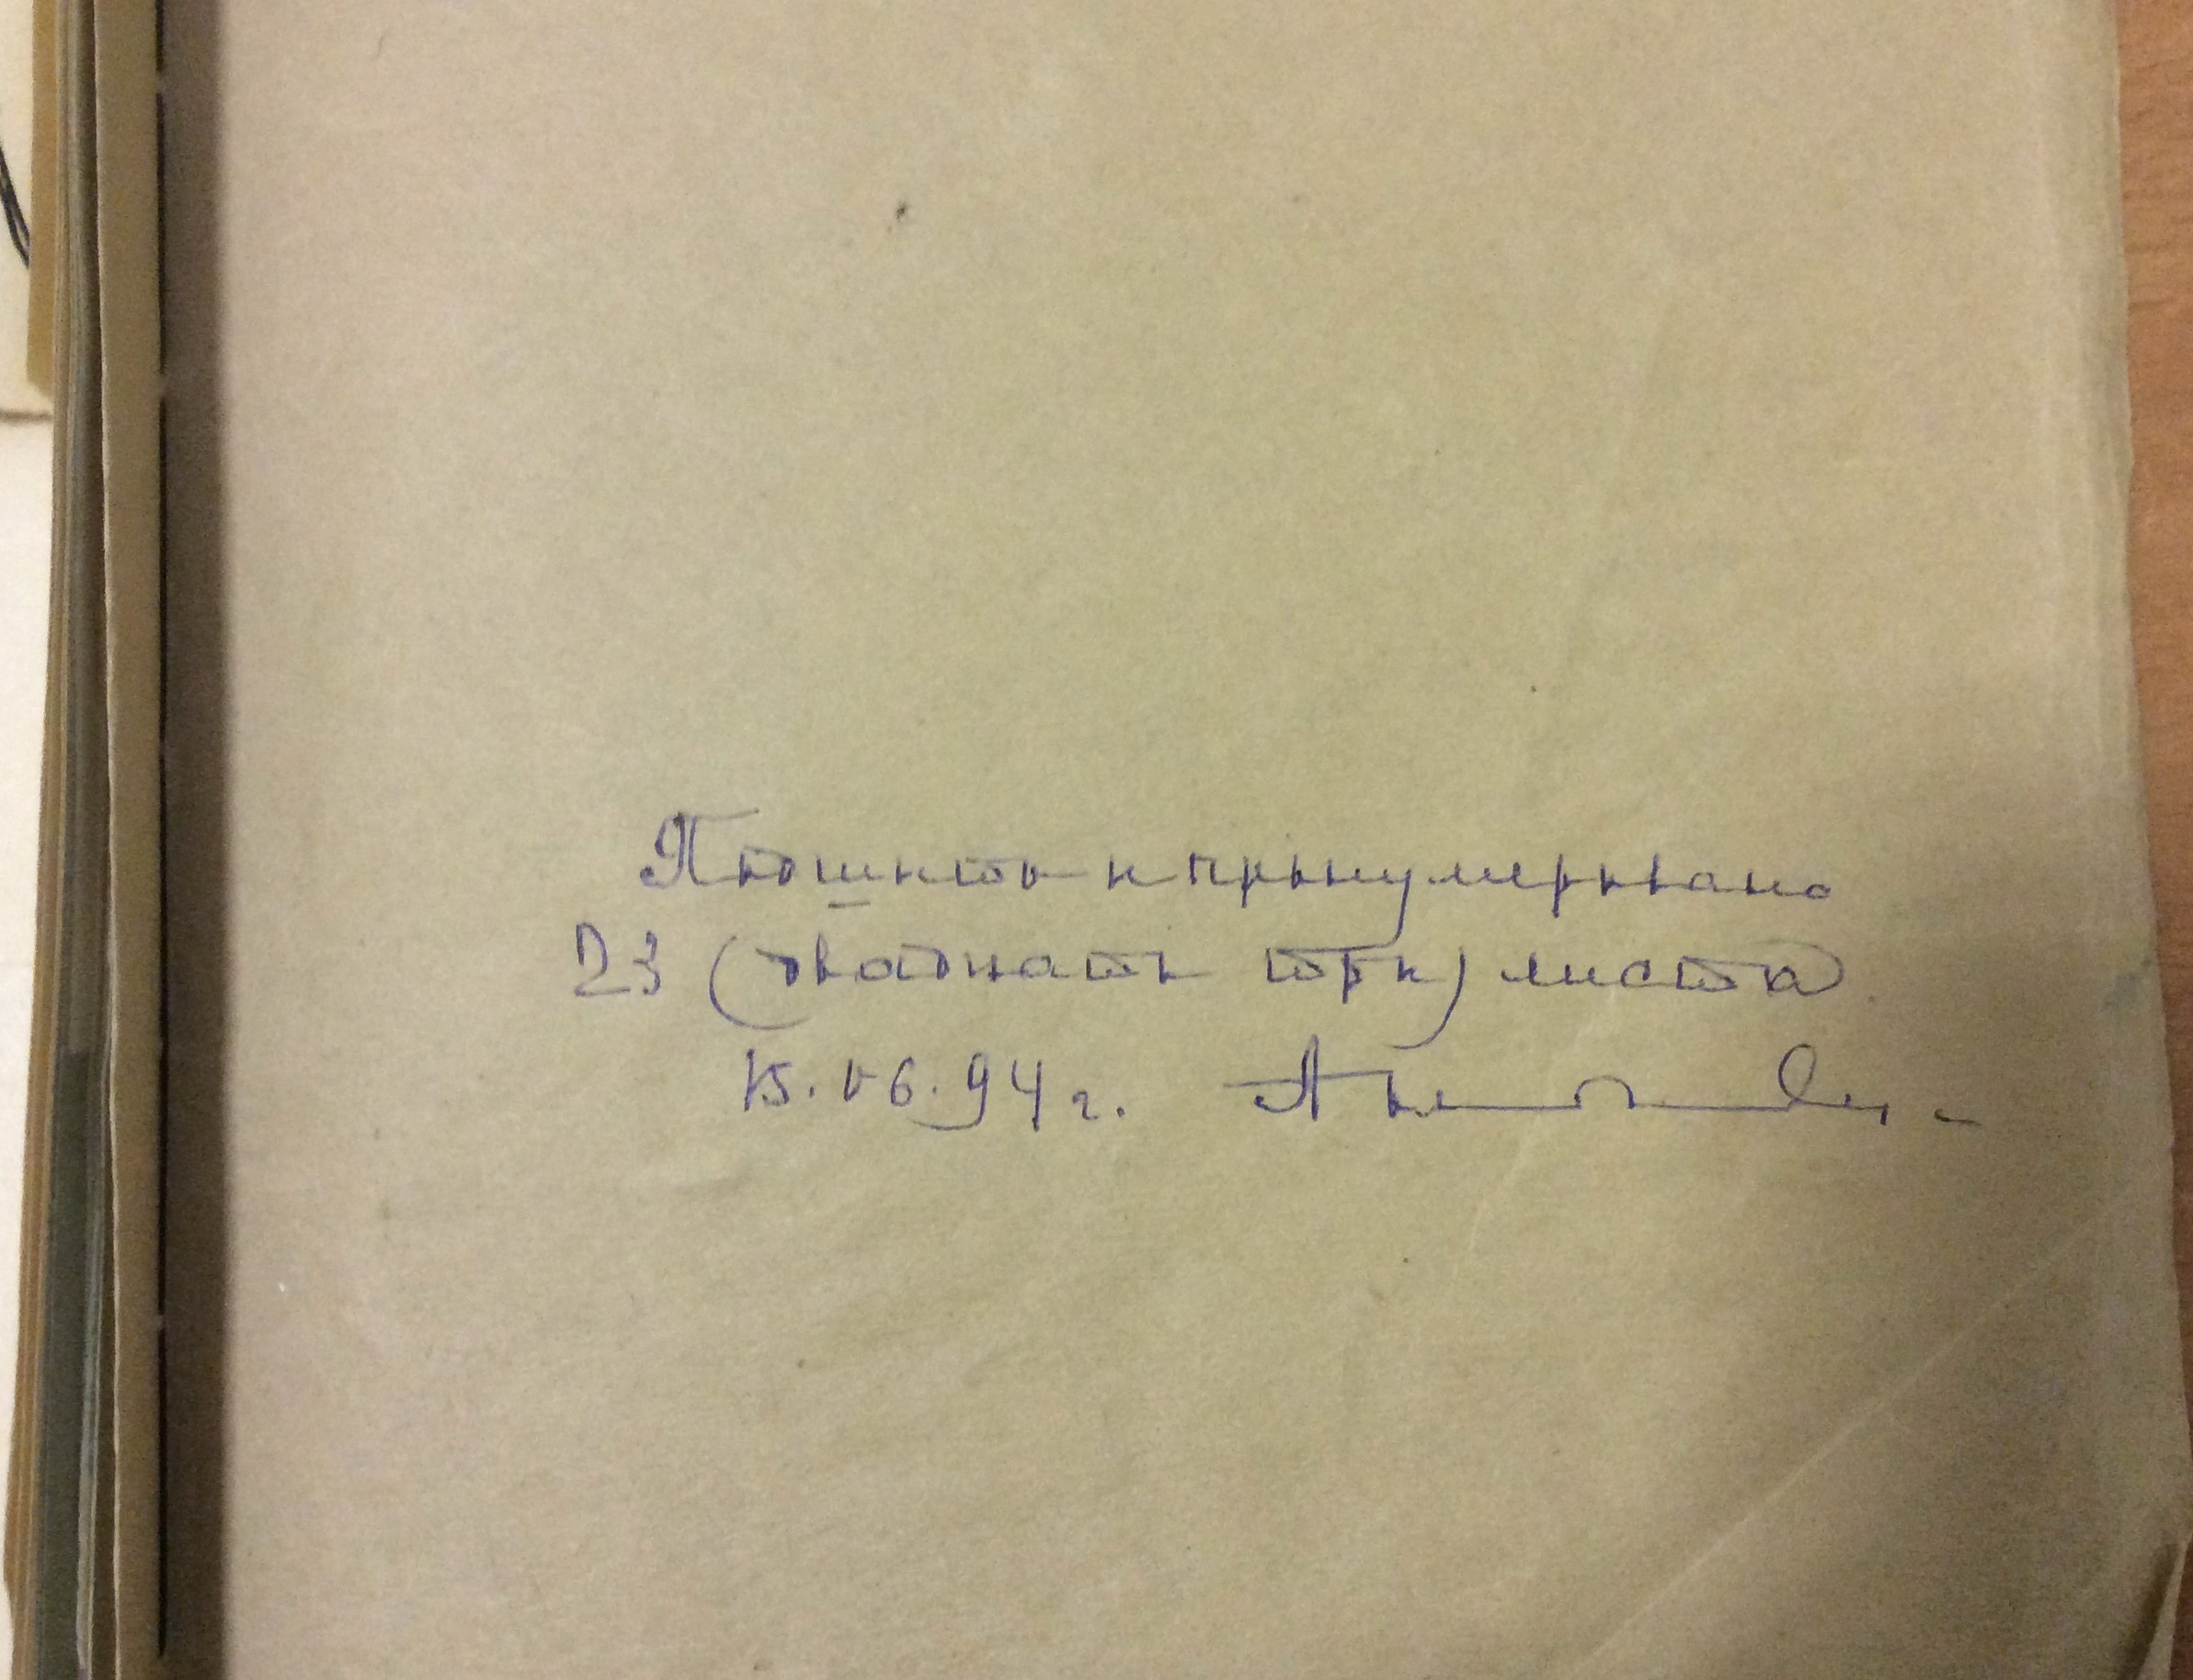 Подшито и пронумеровано
23 (двадцать три) листа
15.06.94 г.